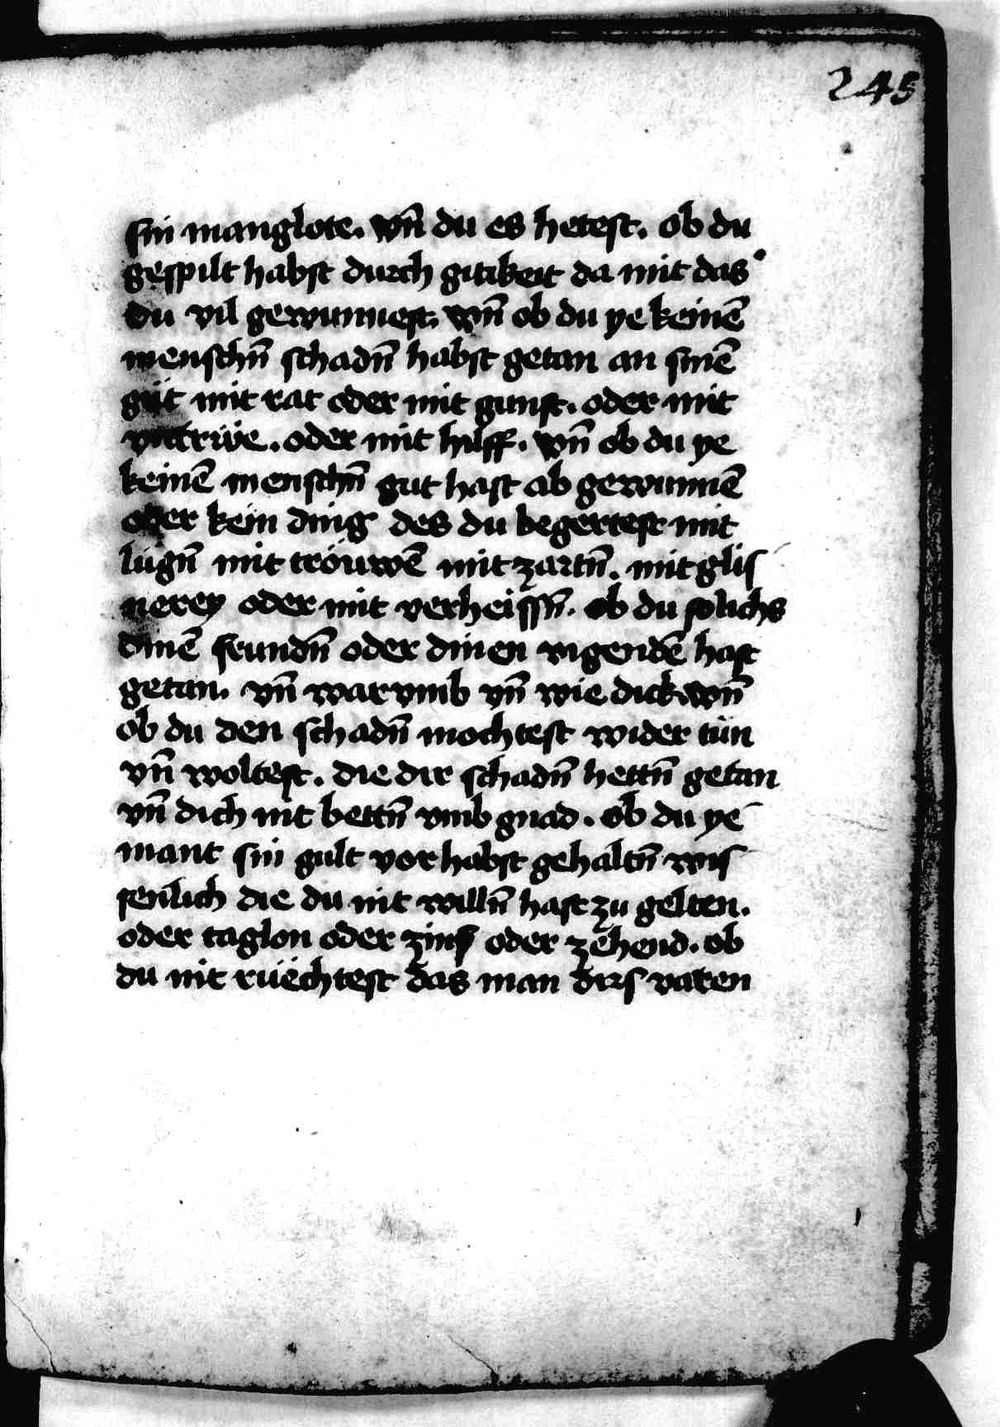 245
sin manglote. vn̄ du es hetest. ob du
gespilt habst durch gitikeit da mit das
du vil gewunnest. vn̄ ob du ye keinē
menschn̄ schadn̄ habst getan an sinē
gůt mit rat oder mit gunst. oder mit
vntrüe. oder mit hilff. vn̄ ob du ye
keinē menschn̄ gut hast ab gewunnē
oder kein ding des du begertest mit
lügn̄ mit tröuwē mit zartn̄. mit glis
nerey oder mit verheissn̄. ob du solichs
dinē frundn̄ oder dinen vigendē hast
getan. vn̄ warvmb vn̄ wie dick. vn̄
ob du den schadn̄ mochtest wider tůn
vn̄ woltest. die dir schadn̄ hettn̄ getan
vn̄ dich nit bettn̄ vmb gnad. ob du ye
mant sin gult vor habst gehaltn̄ wis
senlich die du nit willn̄ hast zu gelten.
oder taglon oder zins oder zehend. ob
du nit rüechtest das man dirs varen